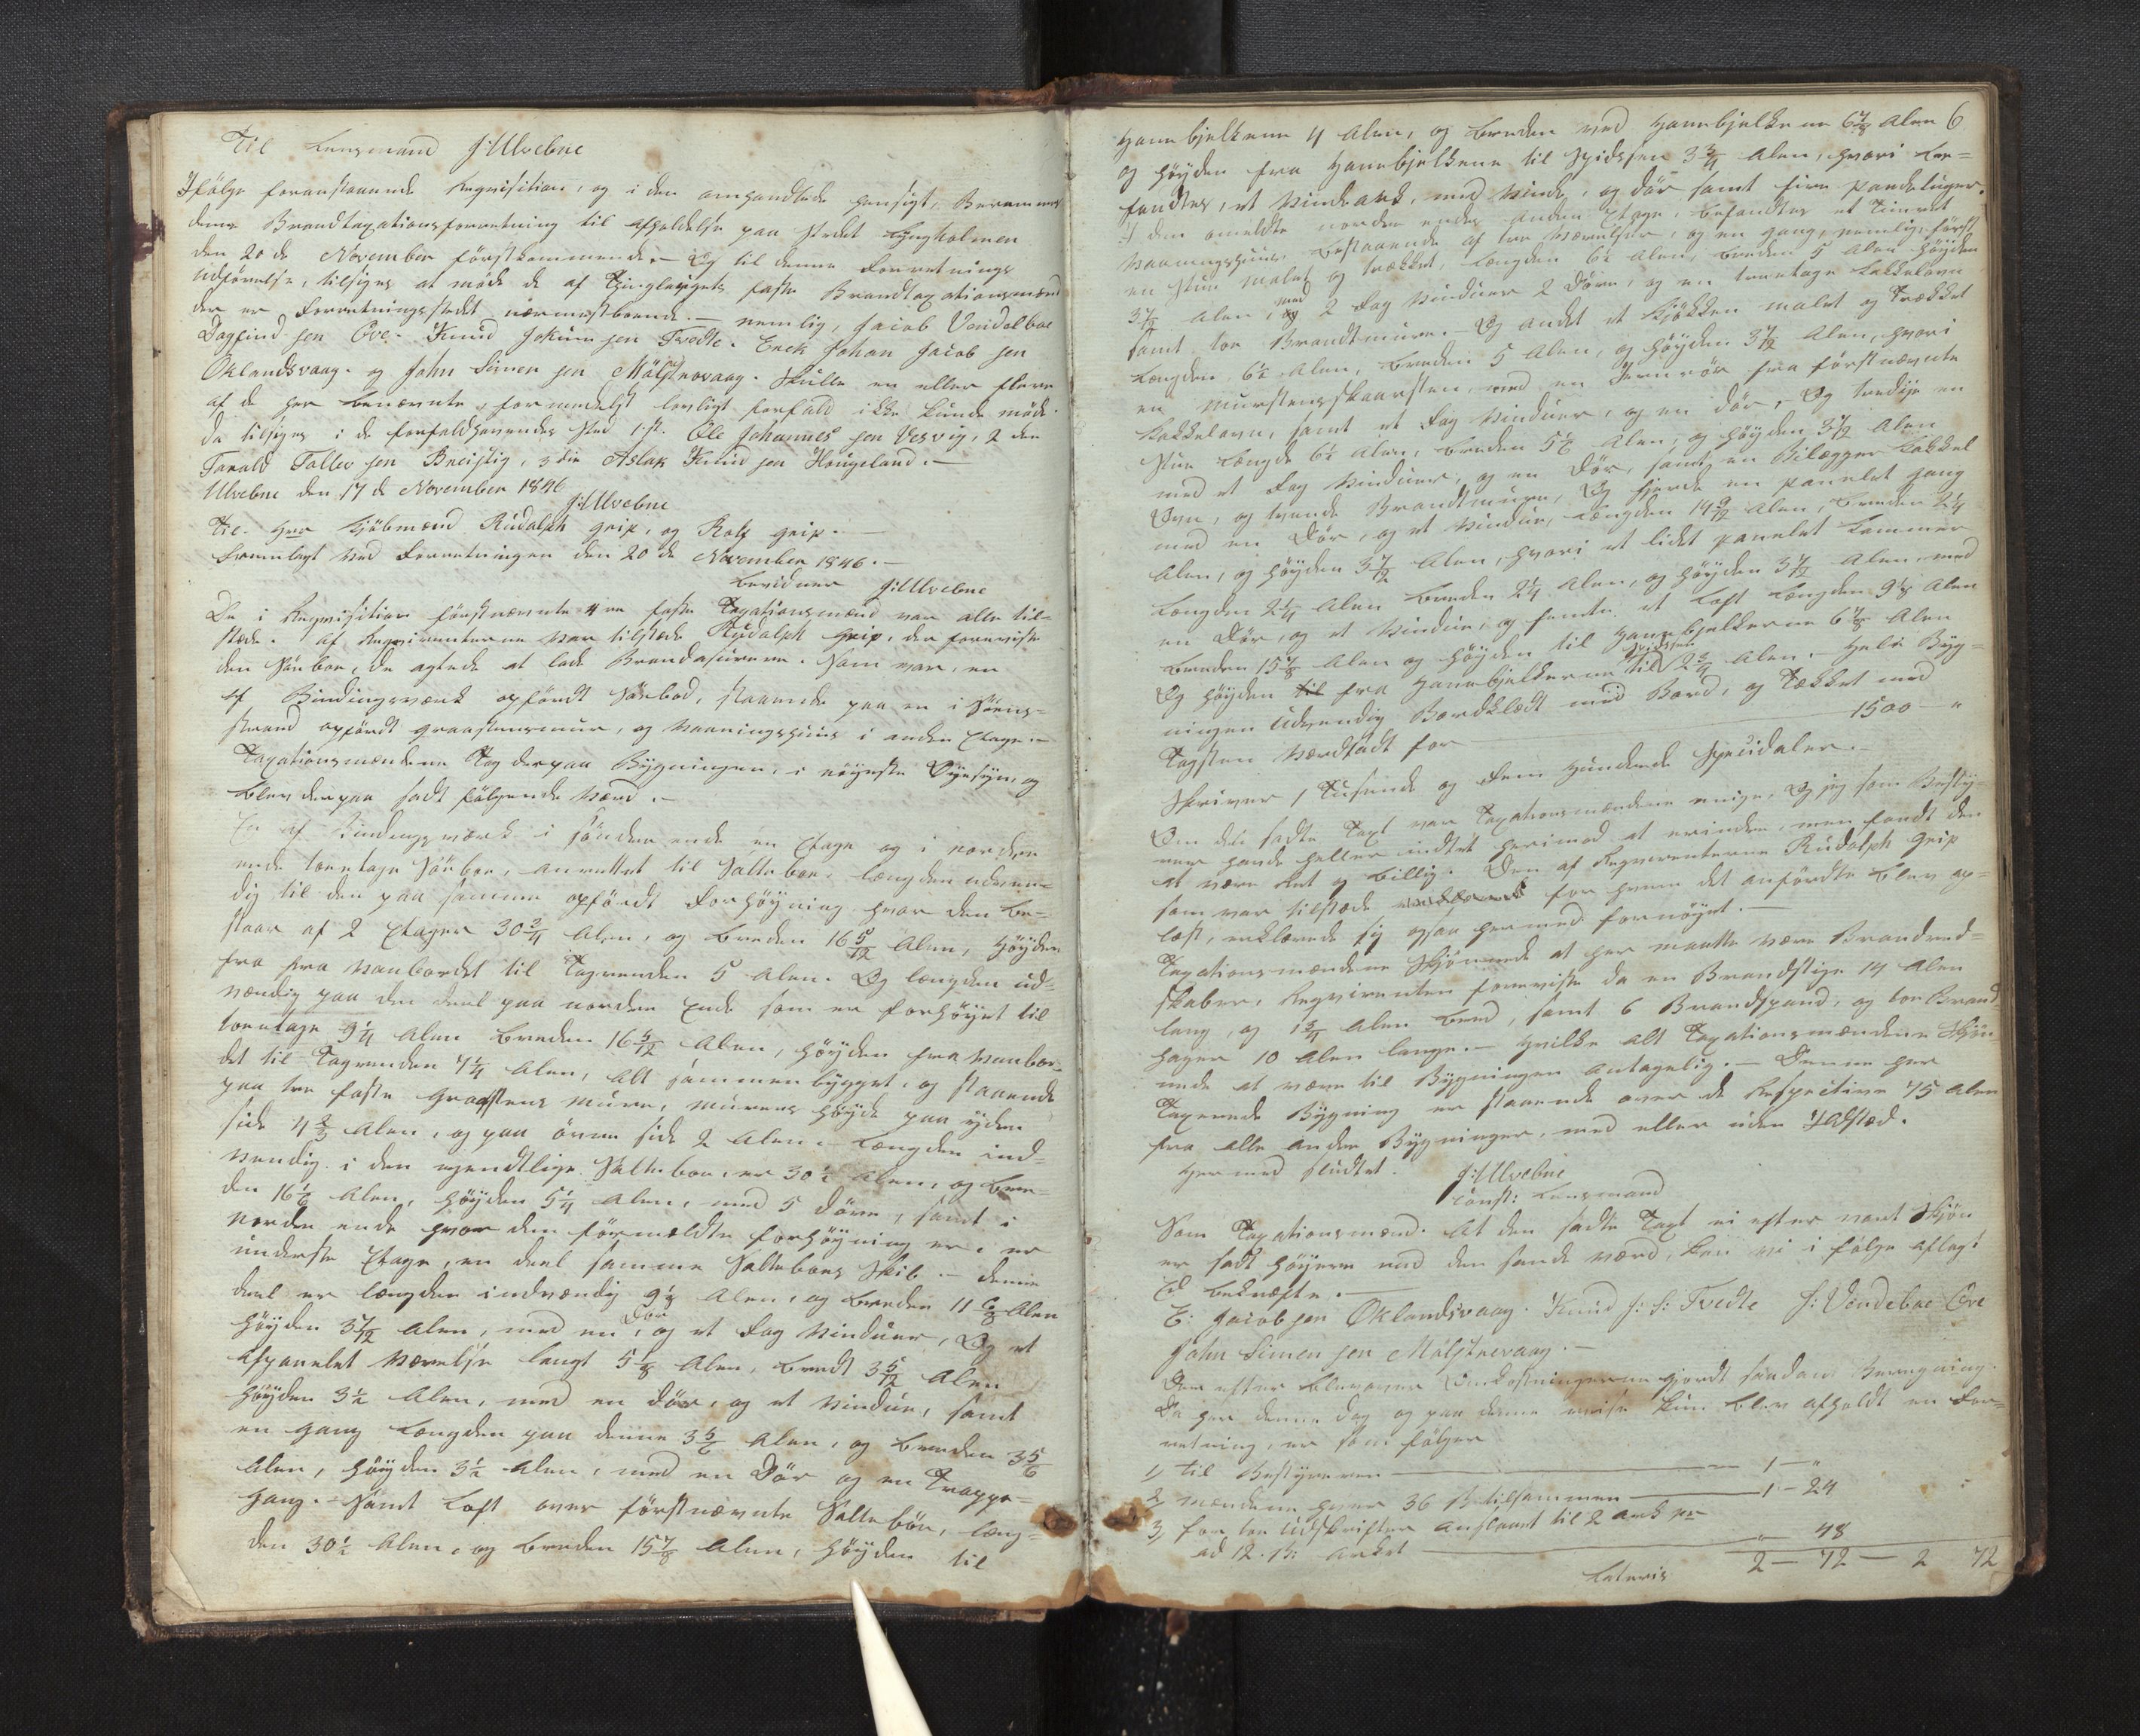 Til Lensmand J: Ulvebne
Ifölge foranstaaende Reqvisition, og i den omhandlede hensigt, Berammes
denne Brandtaxationsforretning til afholdelse paa stedet Lyngholmen
den 20de November förstkommende. Og til denne Forretnings
udförelse, tilsiges at möde de af Tinglavgets faste Brandtaxationsmænd
der er Forretningsstedet nærmestboende. — nemlig, Jacob Vendelboe
Dagfind sen Öve. Knud Jokum sen Tvedte. Erek Johan Jacob sen
Oklandsvaag. og John Simen sen Mölstrevaag. Skulle en eller flere
af de her benævnte, formedelst lovligt forfald ikke kunde möde.
da tilsiges i de forfaldhavendes Sted 1st. Ole Johannes sen Vesvig, 2den
Tarald Tollev sen Breistig, 3die Aslak Knud sen Hougeland. —
Ulvebne den 17de November 1846
J: Ulvebne
Til Herr Kjöbmænd Rudolph Greip, og Rolf Greip. —
Fremlagt ved Forretningen den 20de November 1846. —
bevidner J: Ulvebne
De i Reqvisition förstnævnte 4re faste Taxationsmænd var alle til-
stæde. Af Reqvirenterne var tilstede Rudolph Greip, der foreviste
den Söeboe, de agtede at lade Brandasurere. Som var, en
af Bindingsværk opfördt Söebod, staaende paa en i Söens-
strand opfördt graasteensmuur, og Vaaningshuus i anden Etage. —
Taxationsmændene Tog derpaa Bygningen, i nöyeste Öyesyn, og
blev derpaa sadt fölgende Værd. —
En af Bindingsværk i söndre ende en Etage og i nordre
ende toeetage Söeboe, anrettet til Salteboe. længden udven-
dig til den paa samme opfördt Forhöyning hvor den be-
staar af 2 Etager 30 3/4 Alen, og breden 16 5/12 Alen, Höyden
fra fra Vanbordet til Tagrenden 5 Alen. Og længden ud-
vændig paa den deel paa nordre Ende som er forhöyet til
toeetage 9 1/4 Alen breden 16 5/12 Alen, höyden fra Vanbor-
det til Tagrenden 7 1/4 Alen, alt sammenbygget, og staaende
paa tre faste Graasteens mure, murens höyde paa ydre
side 4 2/3 Alen, og paa övre side 2 Alen. Længden ind-
vendig i den egendtlige Salteboe, er 30 1/2 Alen, og bre-
den 16 1/6 Alen, höyden 5 1/4 Alen, med 5 döre, samt i
nordre ende hvor den förmeldte forhöyning er, er
underste Etage, en deel samme Salteboes Skib. — denne
deel er længden indvændig 9 1/8 Alen, og breden 11 Alen
höyden 3 7/12 Alen, med en Dör, og et Fag Vinduer, Og et
afpanelet Værelse langt 5 1/8 Alen, bredt 3 5/12 Alen
höyden 3 1/2 Alen, med en dör, og et Vindue, samt
en gang længden paa denne 3 5/6 Alen, og breden 3 5/6
Alen, höyden 3 1/2 Alen, med en Dör og en Trappe-
Gang. Samt Loft over förstnævnte Salteböe, læng-
den 30 1/2 Alen, og breden 15 7/8 Alen, höyden til
Hanebjelkene 4 Alen, og breden ved Hanebjelkene 6 7/8 Alen 6
og höyden fra Hanebjelkene til Spidssen 3 3/4 Alen, hvori be-
fandtes, et Vindeark, med Vinde, og dör samt fire pandeluger.
I den omeldte nordre endes anden Etage, befandtes et Timret
Vaaningshuus bestaaende af tre Værelser, og en gang, nemlig först
en Stue malet og trækket, længden 6 1/2 Alen, breden 5 Alen höyden
3 7/12 Alen, med 2 Fag Vinduer 2 Döre, og en toeetage Kakkelovn
samt toe Brandtmure. — Og andet et Kjökken malet og trækket
Længden 6 1/2 Alen, breden 5 Alen, og höyden 3 7/12 Alen, hvori
en Murstensskaarsten, med en Jernrör fra förstnævnte
Kakkelovn, samt et Fag Vinduer, og en dör, Og tredje en
Stue længde 6 1/2 Alen, breden 5 1/6 Alen, og höyden 3 7/12 Alen
med et Fag Vinduer, og en Dör, samt en Bilægger Kakkel
Ovn, og tvende Brandtmure, Og fjerde en panelet gang
med en Dör, og et Vindue, længden 14 Alen, breden 2 1/4
Alen, og höyden 3 7/12 Alen, hvori et lidet panelet Kammer
længden 2 1/4 Alen breden 2 1/4 Alen, og höyden 3 7/12 Alen med
en Dör, og et Vindue, og femte et Loft længden 9 1/8 Alen
breden 15 7/8 Alen og höyden til Hanebjelkerne 6 1/8 Alen
Og höyden til fra Hanebjelkerne til Spidssen 2 3/4 Alen. — Hele Byg-
ningen udvendig Bordklædt med Bord, og Tækket med
Tagsten Værdsadt for — 1500 — "
Skriver 1 Tusende og Fem Hundrede Speciedaler. —
Om den sadte Taxt var Taxationsmændene enige, Og jeg som Besty-
rer havde heller indtet herimod at erindre, men fandt den
at være Ret og billig. Den af Reqvirenterne Rudolph Greip
som var tilstede for hvem det anfördte blev op-
læst, erklærede sig ogsaa hermed fornöyet. —
Taxationsmændene Skjönnede at her maatte være Brandred-
skaber, Reqvirenten foreviste da en Brandstige 14 Alen
lang, og 1 3/4 Alen bred, samt 6 Brandspand, og toe Brand
hager 10 Alen lange. — Hvilke alt Taxationsmændene Skjön-
nede at være til Bygningen antagelig. — Denne her
Taxerede Bygning er staaende over de Respective 75 Alen
fra alle andre Bygninger, med eller uden Ildsted.
Hermed sluttet. J: Ulvebne
const: Lensmand
Som Taxationsmænd. At den sadte Taxt ei efter vort Skjön
er sadt höyere end den sande værd, kan vi i fölge aflagt
Ed bekræfte. —
E: Jacobsen Oklandsvaag. Knud J: S: Tvedte J: Vendeboe Öve
John Simen sen Mölstrevaag. —
Der efter blev over Omkostningerne gjordt saadan Beregning.
Da her denne Dag og paa denne reise kun blev afholdt en For-
retning, er som fölger
1, til Bestyreren — 1 — "
2, mændene hver 36 S tilsammen — 1 — 24
3, for toe Udskrifter anslaaet til 2 ark pr
ad 12 sk: arket — " 48
Lateris 2 — 72 — 2 72